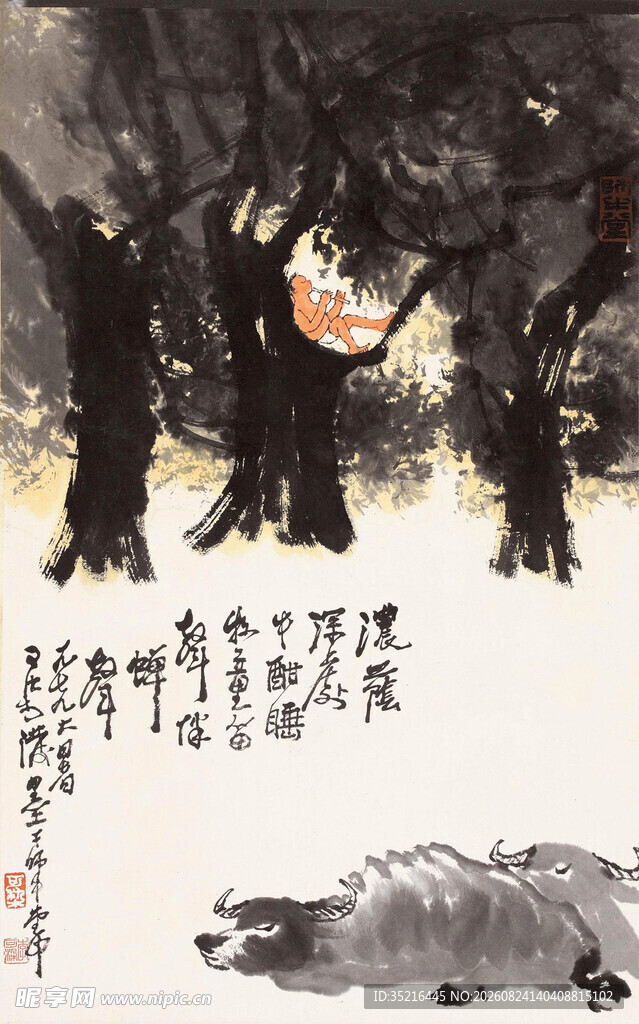 師牛堂
濃蔭
深處
牛酣睡
牧童笛
聲伴
蟬
聲
一九七九大暑日
可染 墨于師牛堂中
可染
昵享网 www.nipic.cn
ID:35216445 NO:20260824140408815102